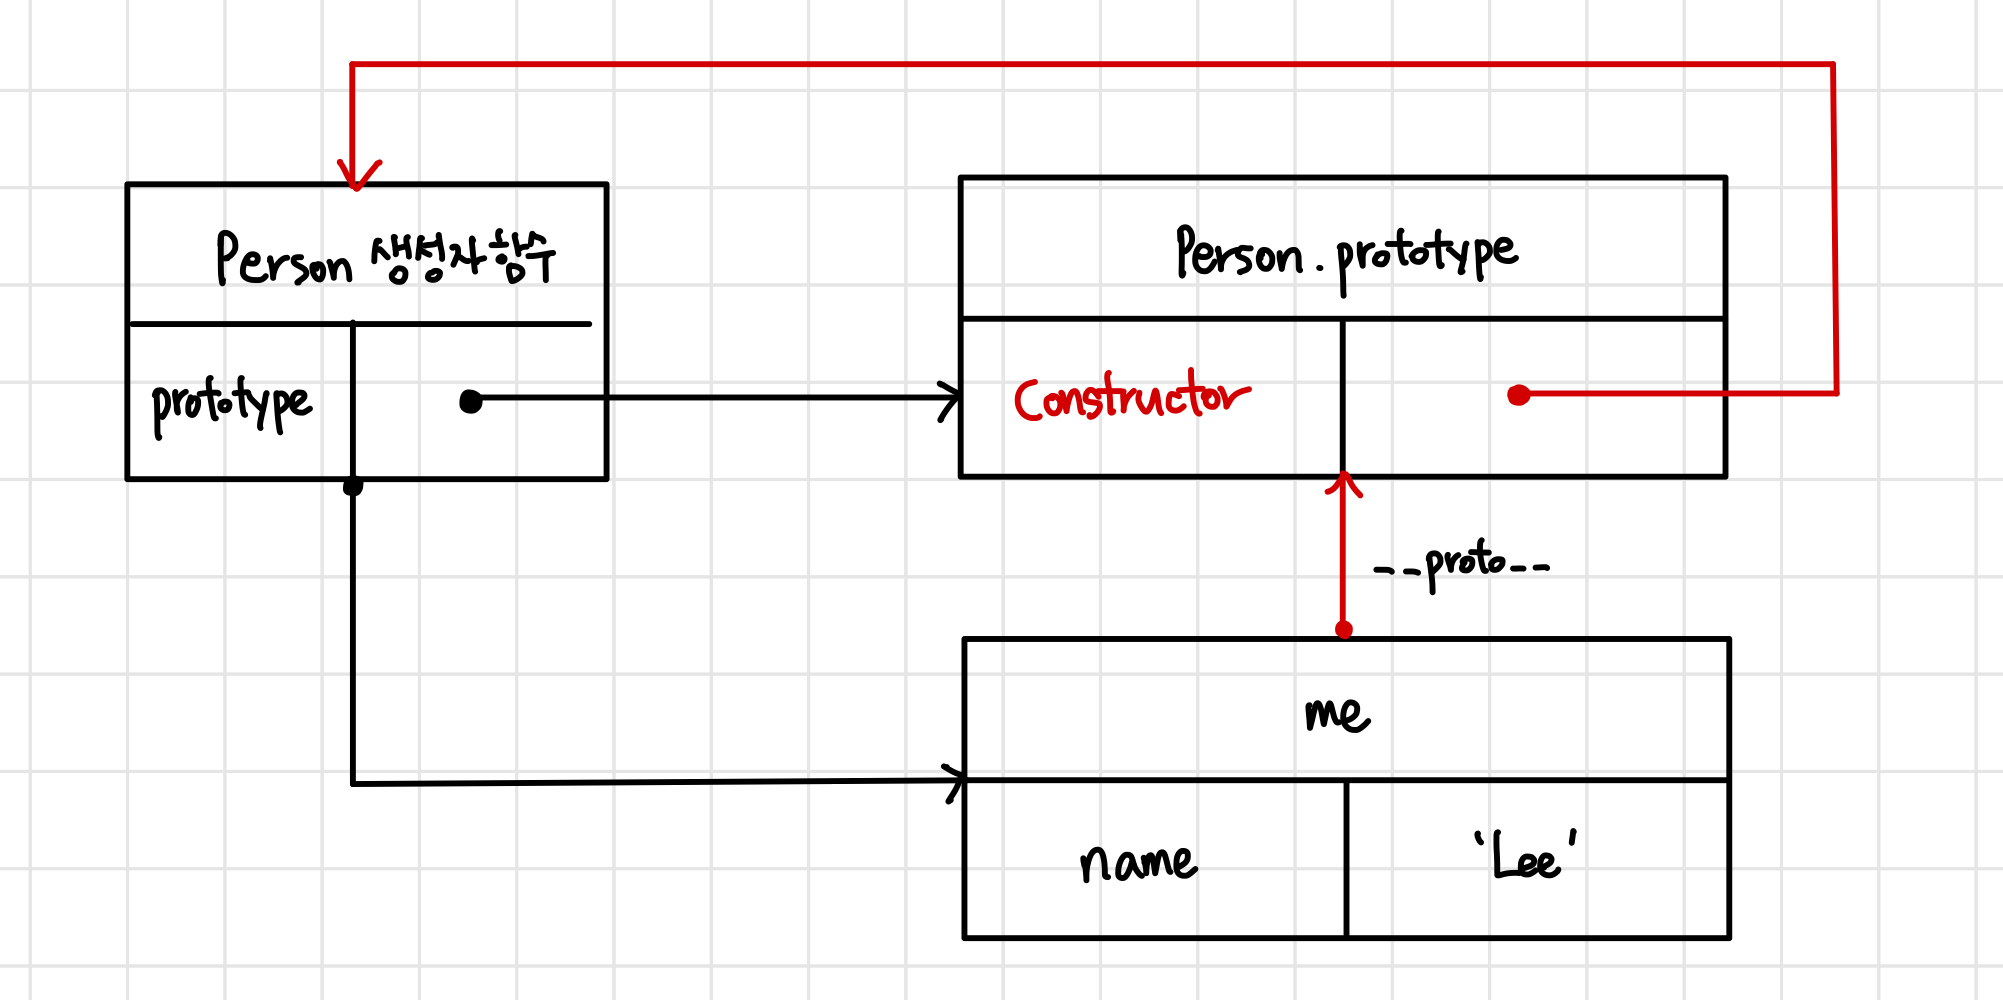 Person 생성자 함수
Person.prototype
prototype
Constructor
--proto--
me
name
'Lee'